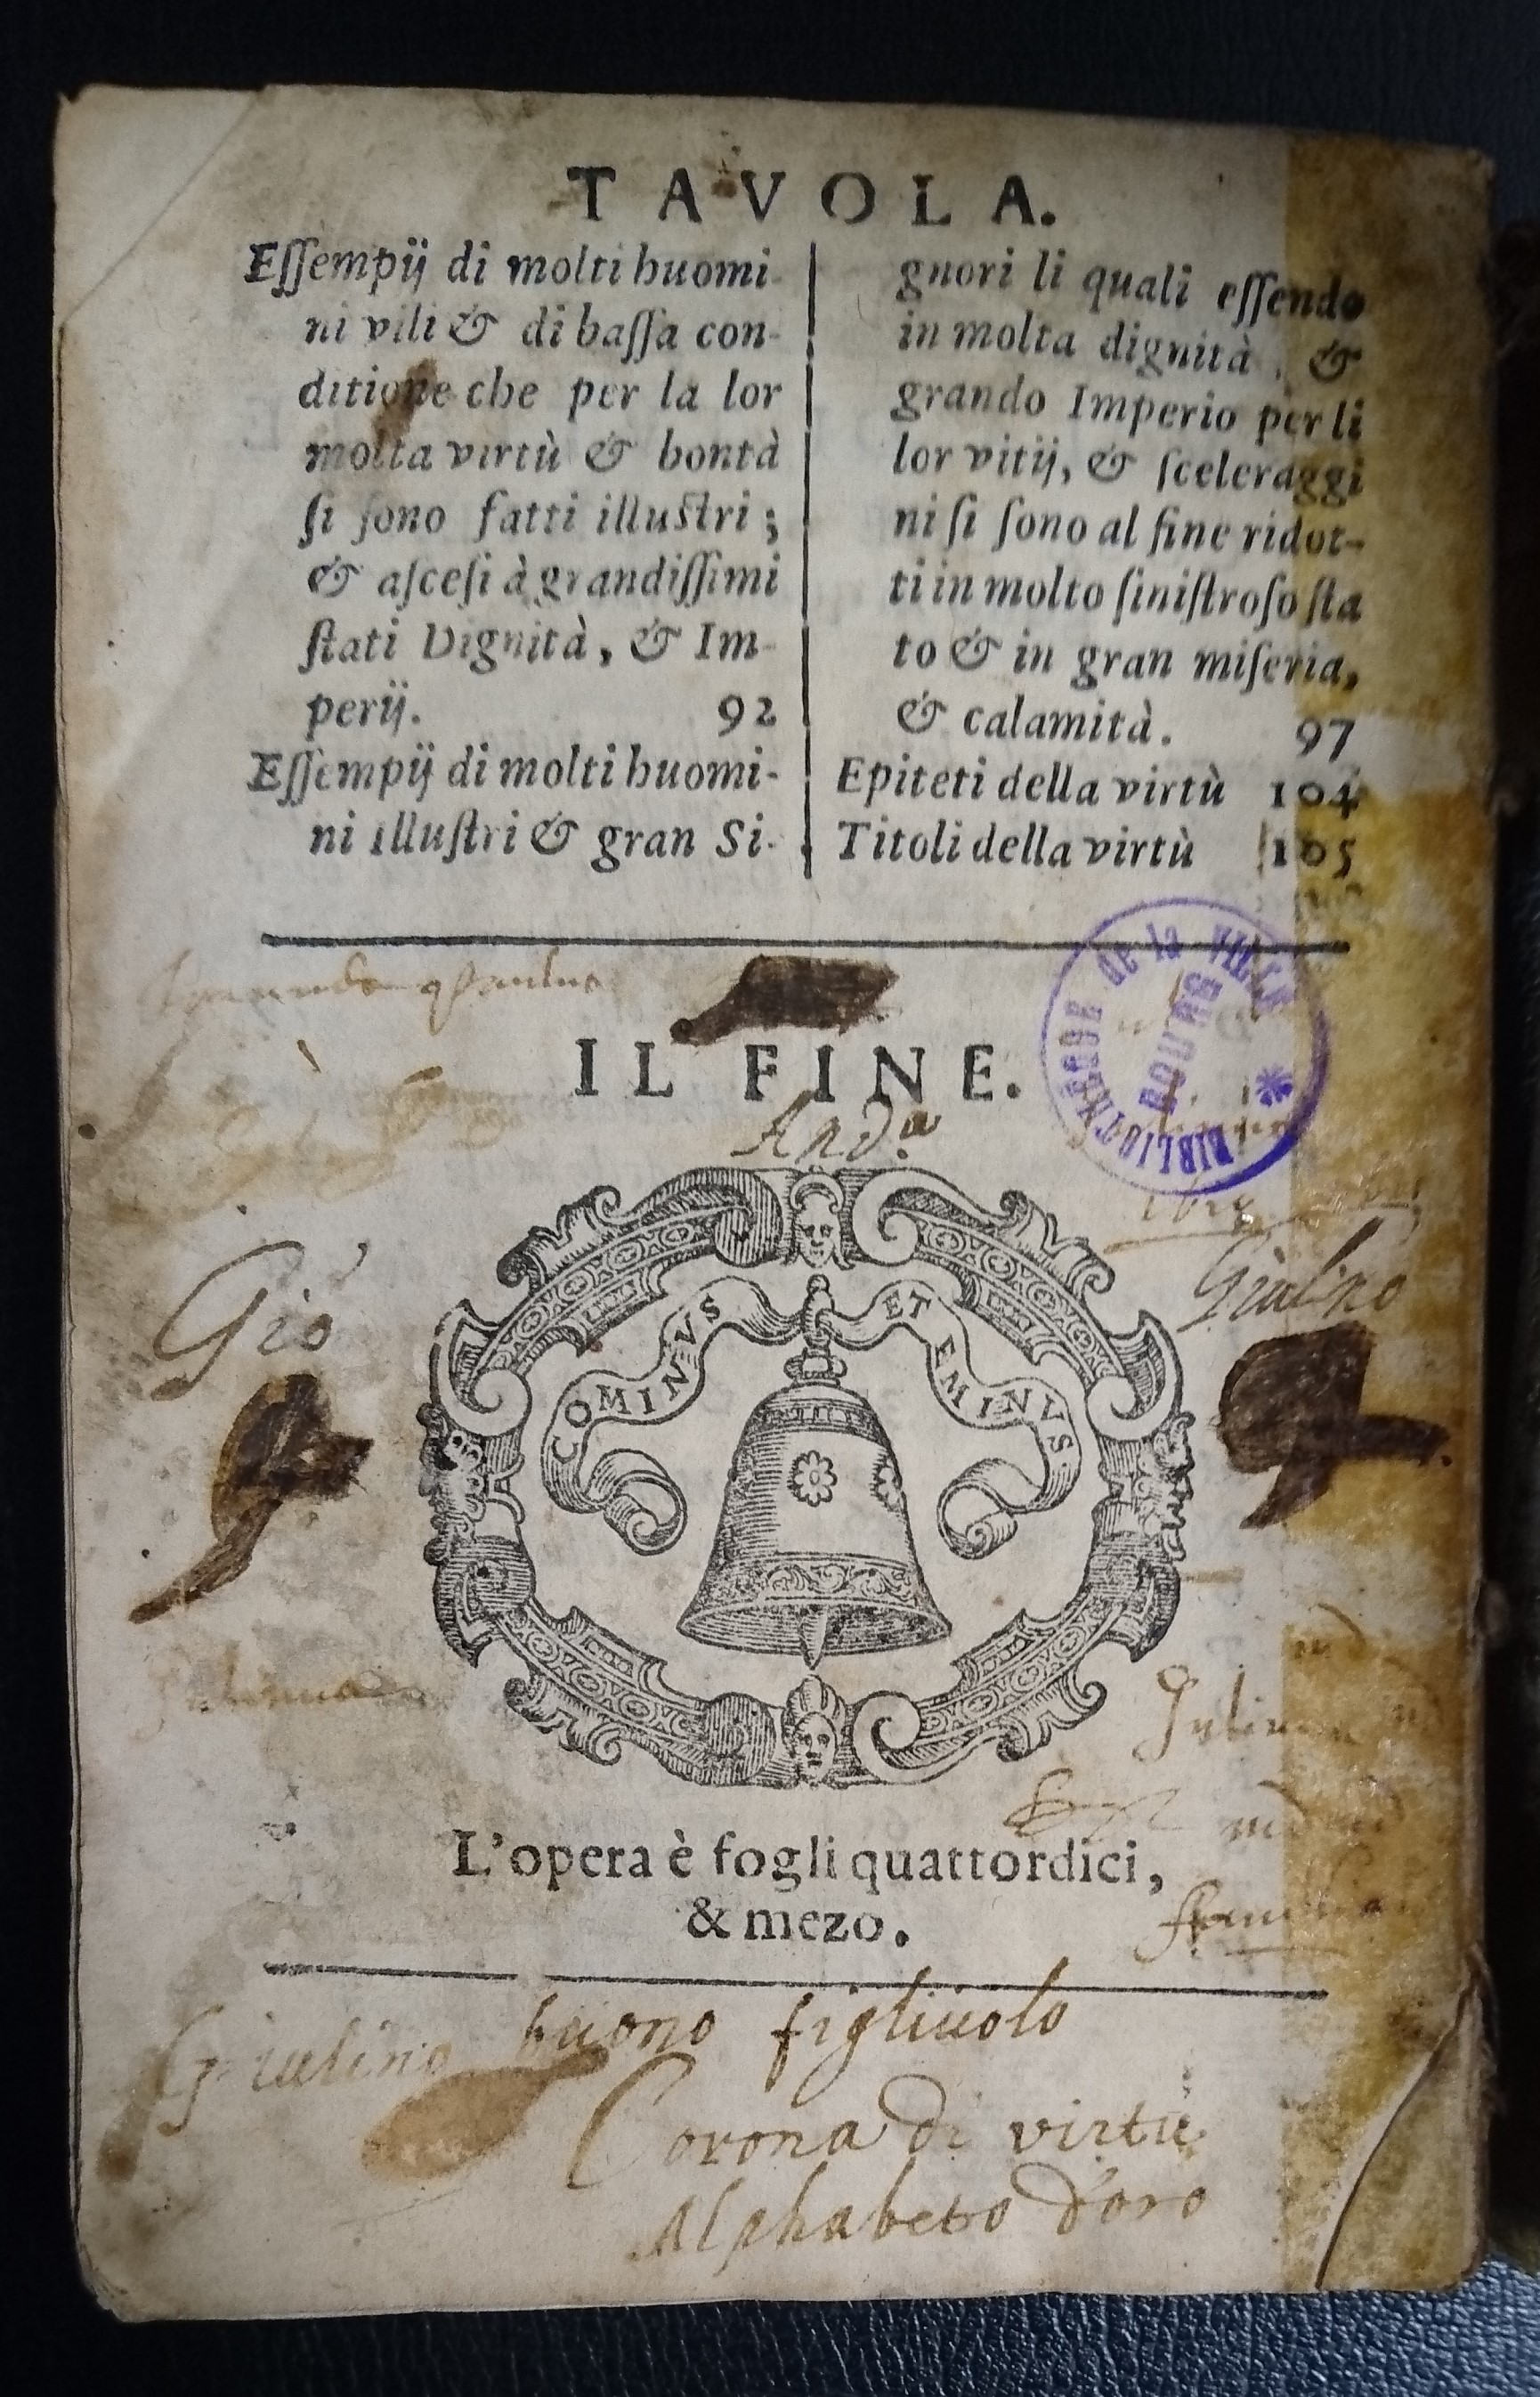 TAVOLA.
Eſſempij di molti huomi-
ni vili & di baſſa con-
ditione che per la lor
molta virtù & bontà
ſi ſono fatti illuſtri;
& aſceſi à grandiſſimi
ſtati Dignità, & Im-
perij. 92
Eſſempij di molti huomi-
ni illuſtri & gran Si-
gnori li quali eſſendo
in molta dignità, &
grando Imperio per li
lor vitij, & ſceleraggi
ni ſi ſono al fine ridot-
ti in molto ſiniſtroſo ſta
to & in gran miſeria,
& calamità. 97
Epiteti della virtù 104
Titoli della virtù 105
BIBLIOTHÈQUE de la VILLE
BOURG
IL FINE.
And.a
Gio
Giulino
COMINVS ET EMINVS
L'opera è fogli quattordici,
& mezo.
Giulino buono figliuolo
Corona di virtù
Alphabeto d'oro